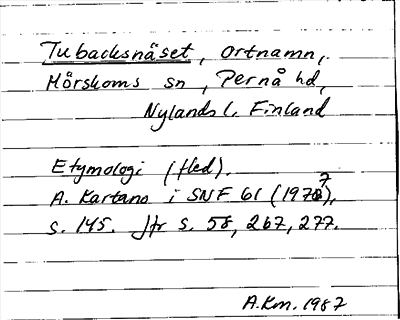 Tubacksnäset, ortnamn,
Mörskoms sn, Pernå hd,
Nylands l. Finland
Etymologi (fled).
A. Kartano i SNF 61 (1977),
s. 145. Jfr s. 58, 267, 277.
A.Km. 1987